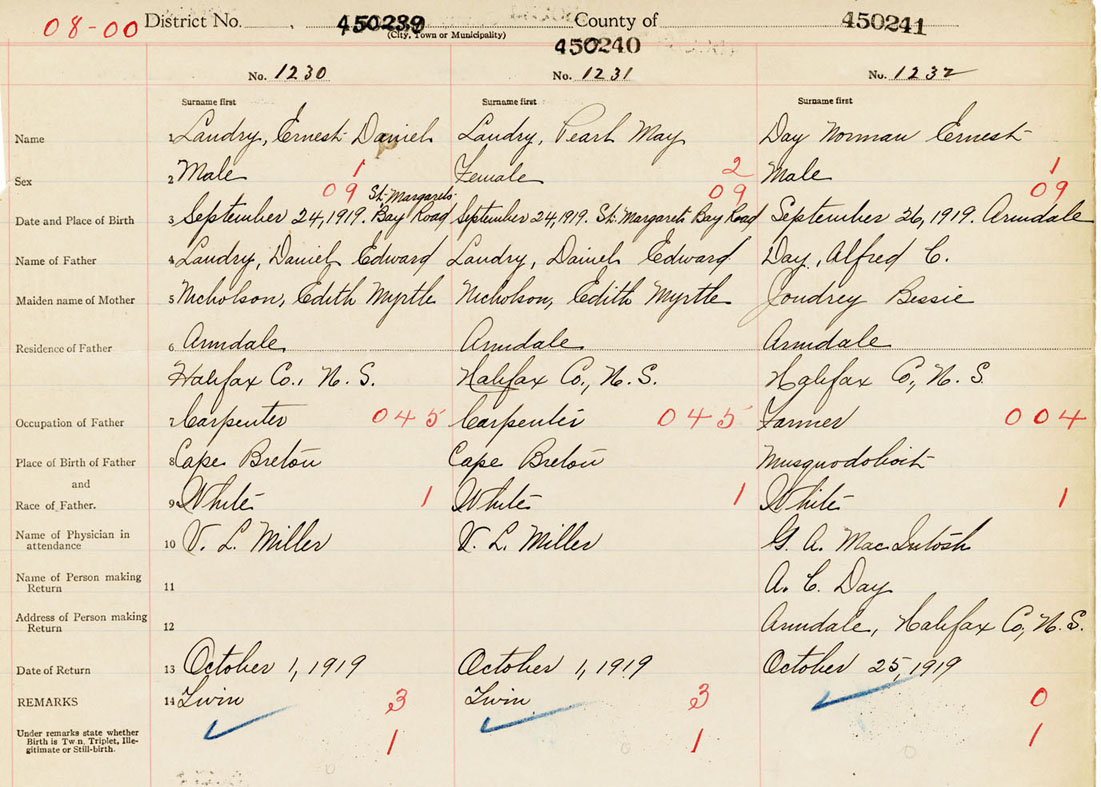 08-00 District No. 450239 County of 450241
(City, Town or Municipality)
450240
No. 1230 No. 1231 No. 1232
Surname first Surname first Surname first
Name 1 Landry, Ernest Daniel Landry, Pearl May Day Norman Ernest
Sex 2 Male 1 Female 2 Male 1
09 09 09
Date and Place of Birth 3 September 24, 1919. St. Margarets Bay Road September 24, 1919. St. Margarets Bay Road September 26, 1919. Armdale
Name of Father 4 Landry, Daniel Edward Landry, Daniel Edward Day, Alfred C.
Maiden name of Mother 5 Nicholson, Edith Myrtle Nicholson, Edith Myrtle Joudrey Bessie
Residence of Father 6 Armdale Armdale Armdale
Halifax Co., N. S. Halifax Co., N. S. Halifax Co., N. S.
Occupation of Father 7 Carpenter 045 Carpenter 045 Farmer 004
Place of Birth of Father 8 Cape Breton Cape Breton Musquodoboit
and
Race of Father. 9 White 1 White 1 White 1
Name of Physician in
attendance 10 V. L. Miller V. L. Miller G. A. MacIntosh
Name of Person making
Return 11 A. C. Day
Address of Person making
Return 12 Armdale, Halifax Co, N. S.
Date of Return 13 October 1, 1919 October 1, 1919 October 25, 1919
REMARKS 14 Twin 3 Twin 3 0
Under remarks state whether
Birth is Twin, Triplet, Ille-
gitimate or Still-birth. 1 1 1